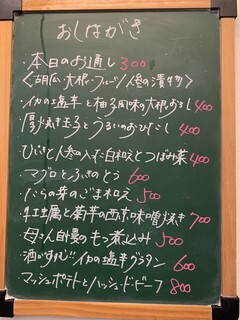 おしながき
・本日のお通し 300
<胡瓜・大根・ 人参の漬物>
・イカの塩辛と柚子風味の大根おろし 400
・厚焼き玉子とうるいのおひたし 400
ひじきと人参の入った白和えとつぼみ菜 400
・マグロとふきのとう 600
・たらの芽のごま和え 500
・牡蠣と菊芋の西京味噌焼き 700
・母さん自慢のもつ煮込み 500
・酒がすすむ!!イカの塩辛グラタン 600
・マッシュポテトとハッシュ・ド・ビーフ 800